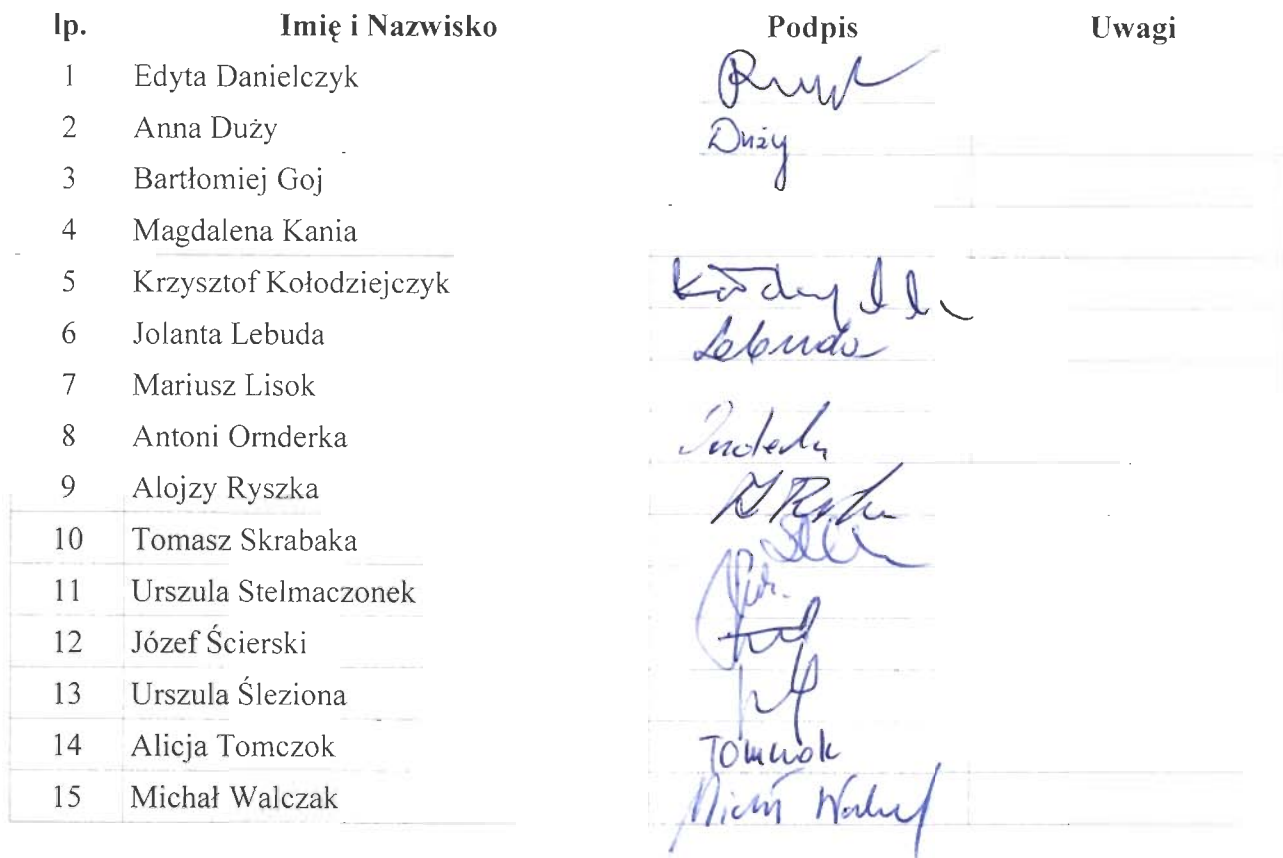 lp. Imię i Nazwisko Podpis Uwagi
1 Edyta Danielczyk
2 Anna Duży Duży
3 Bartłomiej Goj
4 Magdalena Kania
5 Krzysztof Kołodziejczyk
6 Jolanta Lebuda Lebuda
7 Mariusz Lisok
8 Antoni Ornderka
9 Alojzy Ryszka
10 Tomasz Skrabaka
11 Urszula Stelmaczonek
12 Józef Ścierski
13 Urszula Śleziona
14 Alicja Tomczok Tomczok
15 Michał Walczak